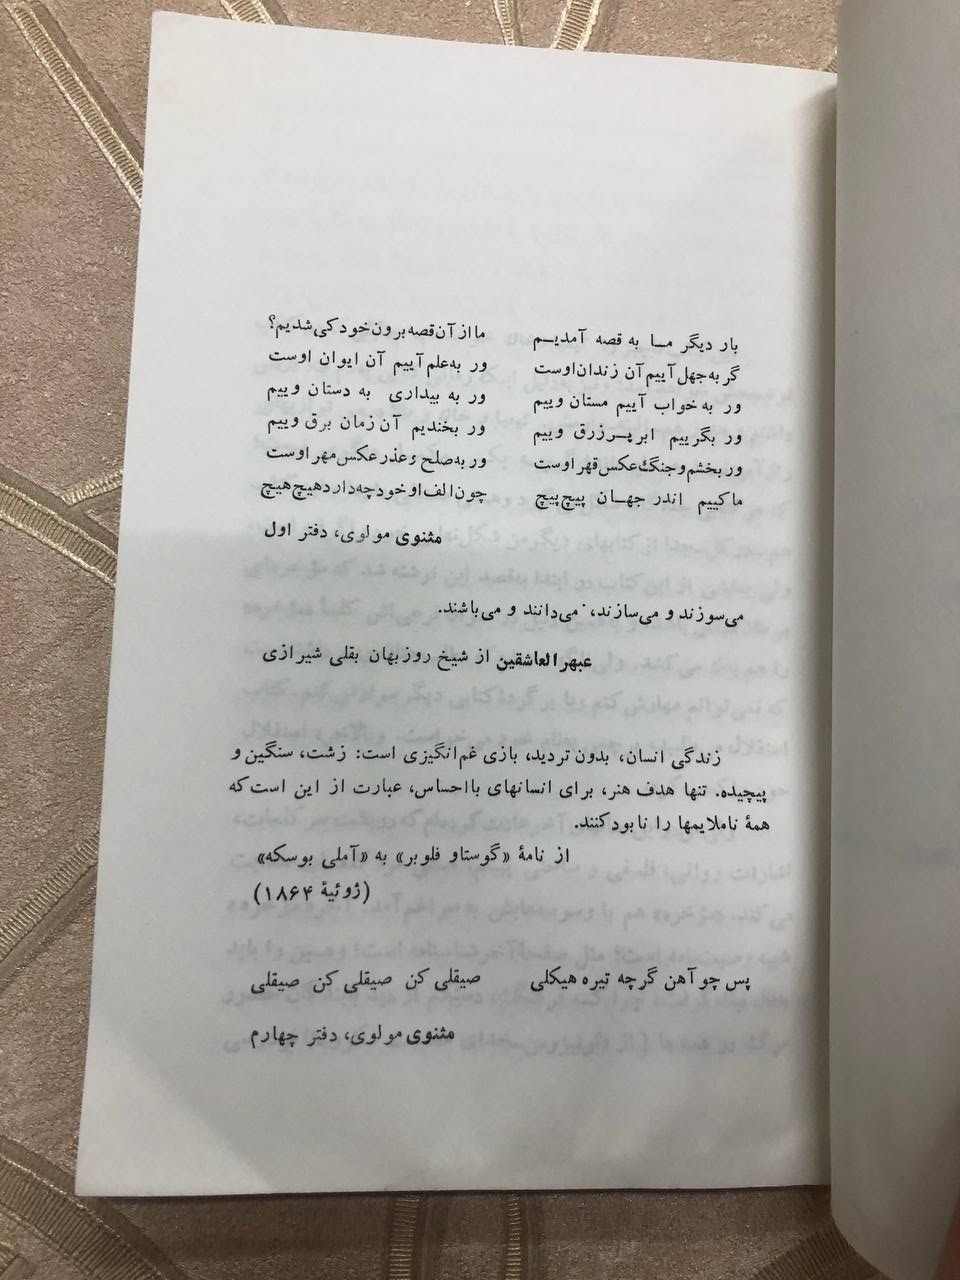 بار دیگر مـا به قصه آمدیـم ما از آن قصه برون خود کی شدیم؟
گر به جهل آییم آن زندان اوست ور به علم آییم آن ایوان اوست
ور به خواب آییم مستان وییم ور به بیداری به دستان وییم
ور بگرییم ابر پـر زرق وییم ور بخندیم آن زمان برق وییم
ور بخشم و جنگ عکس قهر اوست ور به صلح و عذر عکس مهر اوست
ما کییم اندر جهـان پیچ پیچ چون الف او خود چه دارد هیچ هیچ
مثنوی مولوی، دفتر اول
می‌سوزند و می‌سازند، می‌دانند و می‌باشند.
عبهر العاشقین از شیخ روزبهان بقلی شیرازی
زندگی انسان، بدون تردید، بازی غم‌انگیزی است: زشت، سنگین و
پیچیده. تنها هدف هنر، برای انسانهای بااحساس، عبارت از این است که
همۀ ناملایمها را نابود کنند.
از نامۀ «گوستاو فلوبر» به «آملی بوسکه»
(ژوئیۀ ۱۸۶۴)
پس چو آهن گرچه تیره هیکلی صیقلی کن صیقلی کن صیقلی
مثنوی مولوی، دفتر چهارم